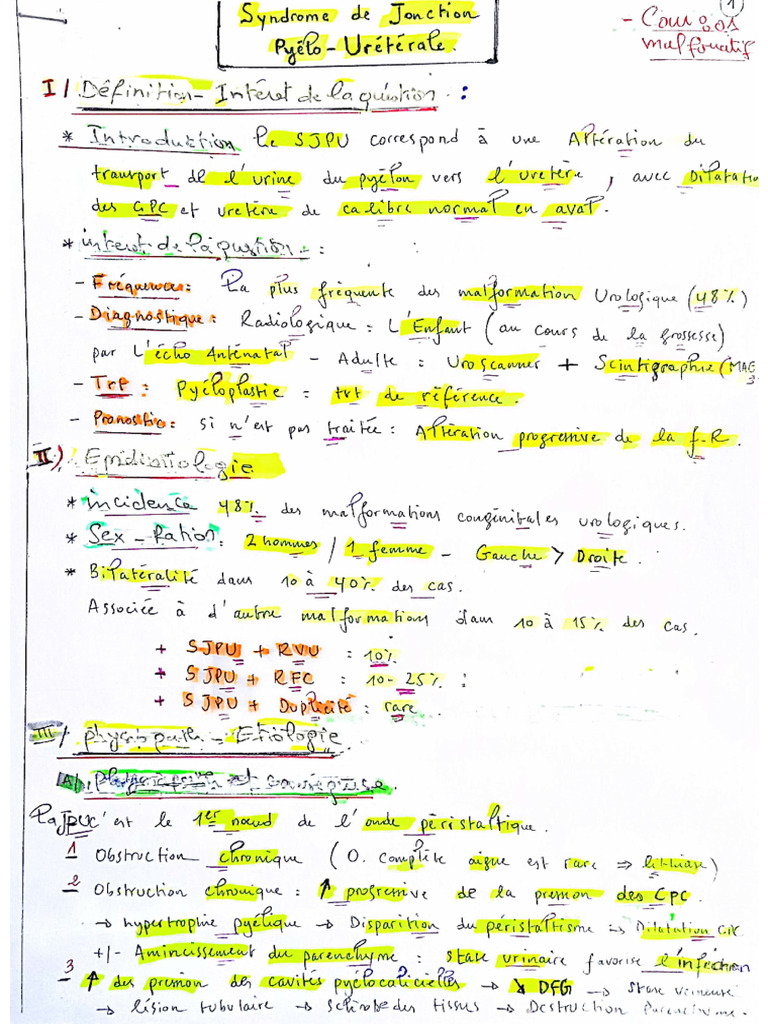 Syndrome de Jonction
Pyélo-Urétérale.
1
- Cour gos
malformatif
I / Définition - Intéret de la question :
* Introduction le SJPU correspond à une Altération du
transport de l'urine du pyélon vers l'uretère, avec Dilatat
des CPC et uretère de calibre normal en aval.
* interet de la qustion - :
- Fréquence: La plus fréquente des malformation Urologique (48%)
- Diagnostique : Radiologique : L'Enfant (au cours de la grossesse)
par l'écho Anténatal - Adulte : Uroscanner + Scintigraphie (MAG
3
- Trt : Pyéloplastie = trt de référence.
- Pronostic: si n'est pas traitée : Altération progressive de la f.R
II) Epidimiologie
* incidence 48% des malformations congénitales urologiques.
* Sex-Ration: 2 hommes / 1 femme - Gauche > Droite.
* Bilatéralité dans 10 à 40% des cas.
Associée à d'autre malformations dans 10 à 15% des cas.
+ SJPU + RVU : 10%
+ SJPU + RFC : 10-25% :
+ SJPU + Duplicité : rare
III / physiopath - Etiologie
A/ et conséquse.
La JPU c'est le 1er nœud de l'onde péristaltique.
1 Obstruction chronique (O. complète aigue est rare ⇒ lithiase)
2 Obstruction chronique : ↑ progressive de la pression des CPC
→ hypertrophie pyélique → Disparition du péristaltisme → Dilatation CPC
+/- Amincissement du parenchyme : stase urinaire favorise l'infection
3 ↑ des pression des cavités pyélocalicielles → ↘ DFG → stase veineuse
→ lésion tubulaire → sclérose des tissus → Destruction Parenchyme.